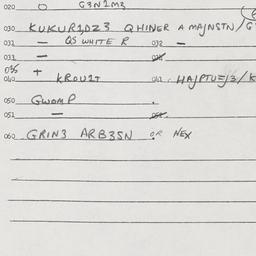 020 O G3N1M3
030 KUKUR1DZ3 QHINER A MAJNSTN/G
031 — QS WHITE R 032 —
033 —
035 +
040 KROU1T 041 HAJPTUEJ3/K
050 GWOMP .
051 —
060 GRIN3 ARB3SN OR NEX